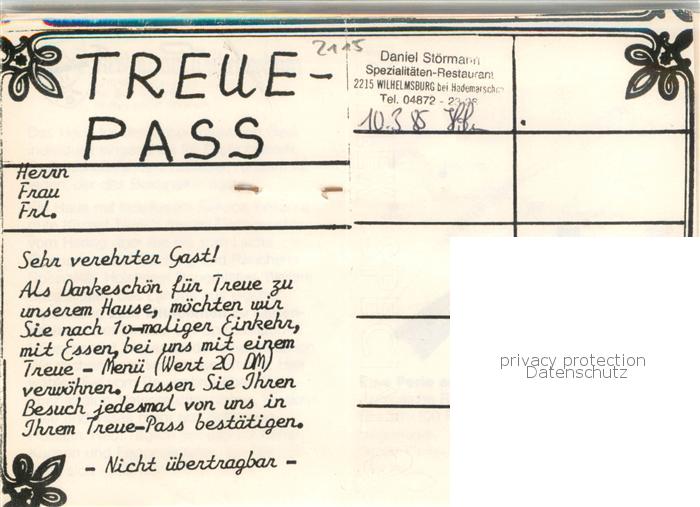 TREUE-
PASS
2115
Herrn
Frau
Frl.
Sehr verehrter Gast!
Als Dankeschön für Treue zu
unserem Hause, möchten wir
Sie nach 10-maliger Einkehr,
mit Essen, bei uns mit einem
Treue - Menü (Wert 20 DM)
verwöhnen. Lassen Sie Ihren
Besuch jedesmal von uns in
Ihrem Treue-Pass bestätigen.
- Nicht übertragbar -
Daniel Störmann
Spezialitäten-Restaurant
2215 WILHELMSBURG bei Hademarschen
Tel. 04872 -
10.3.85
privacy protection
Datenschutz